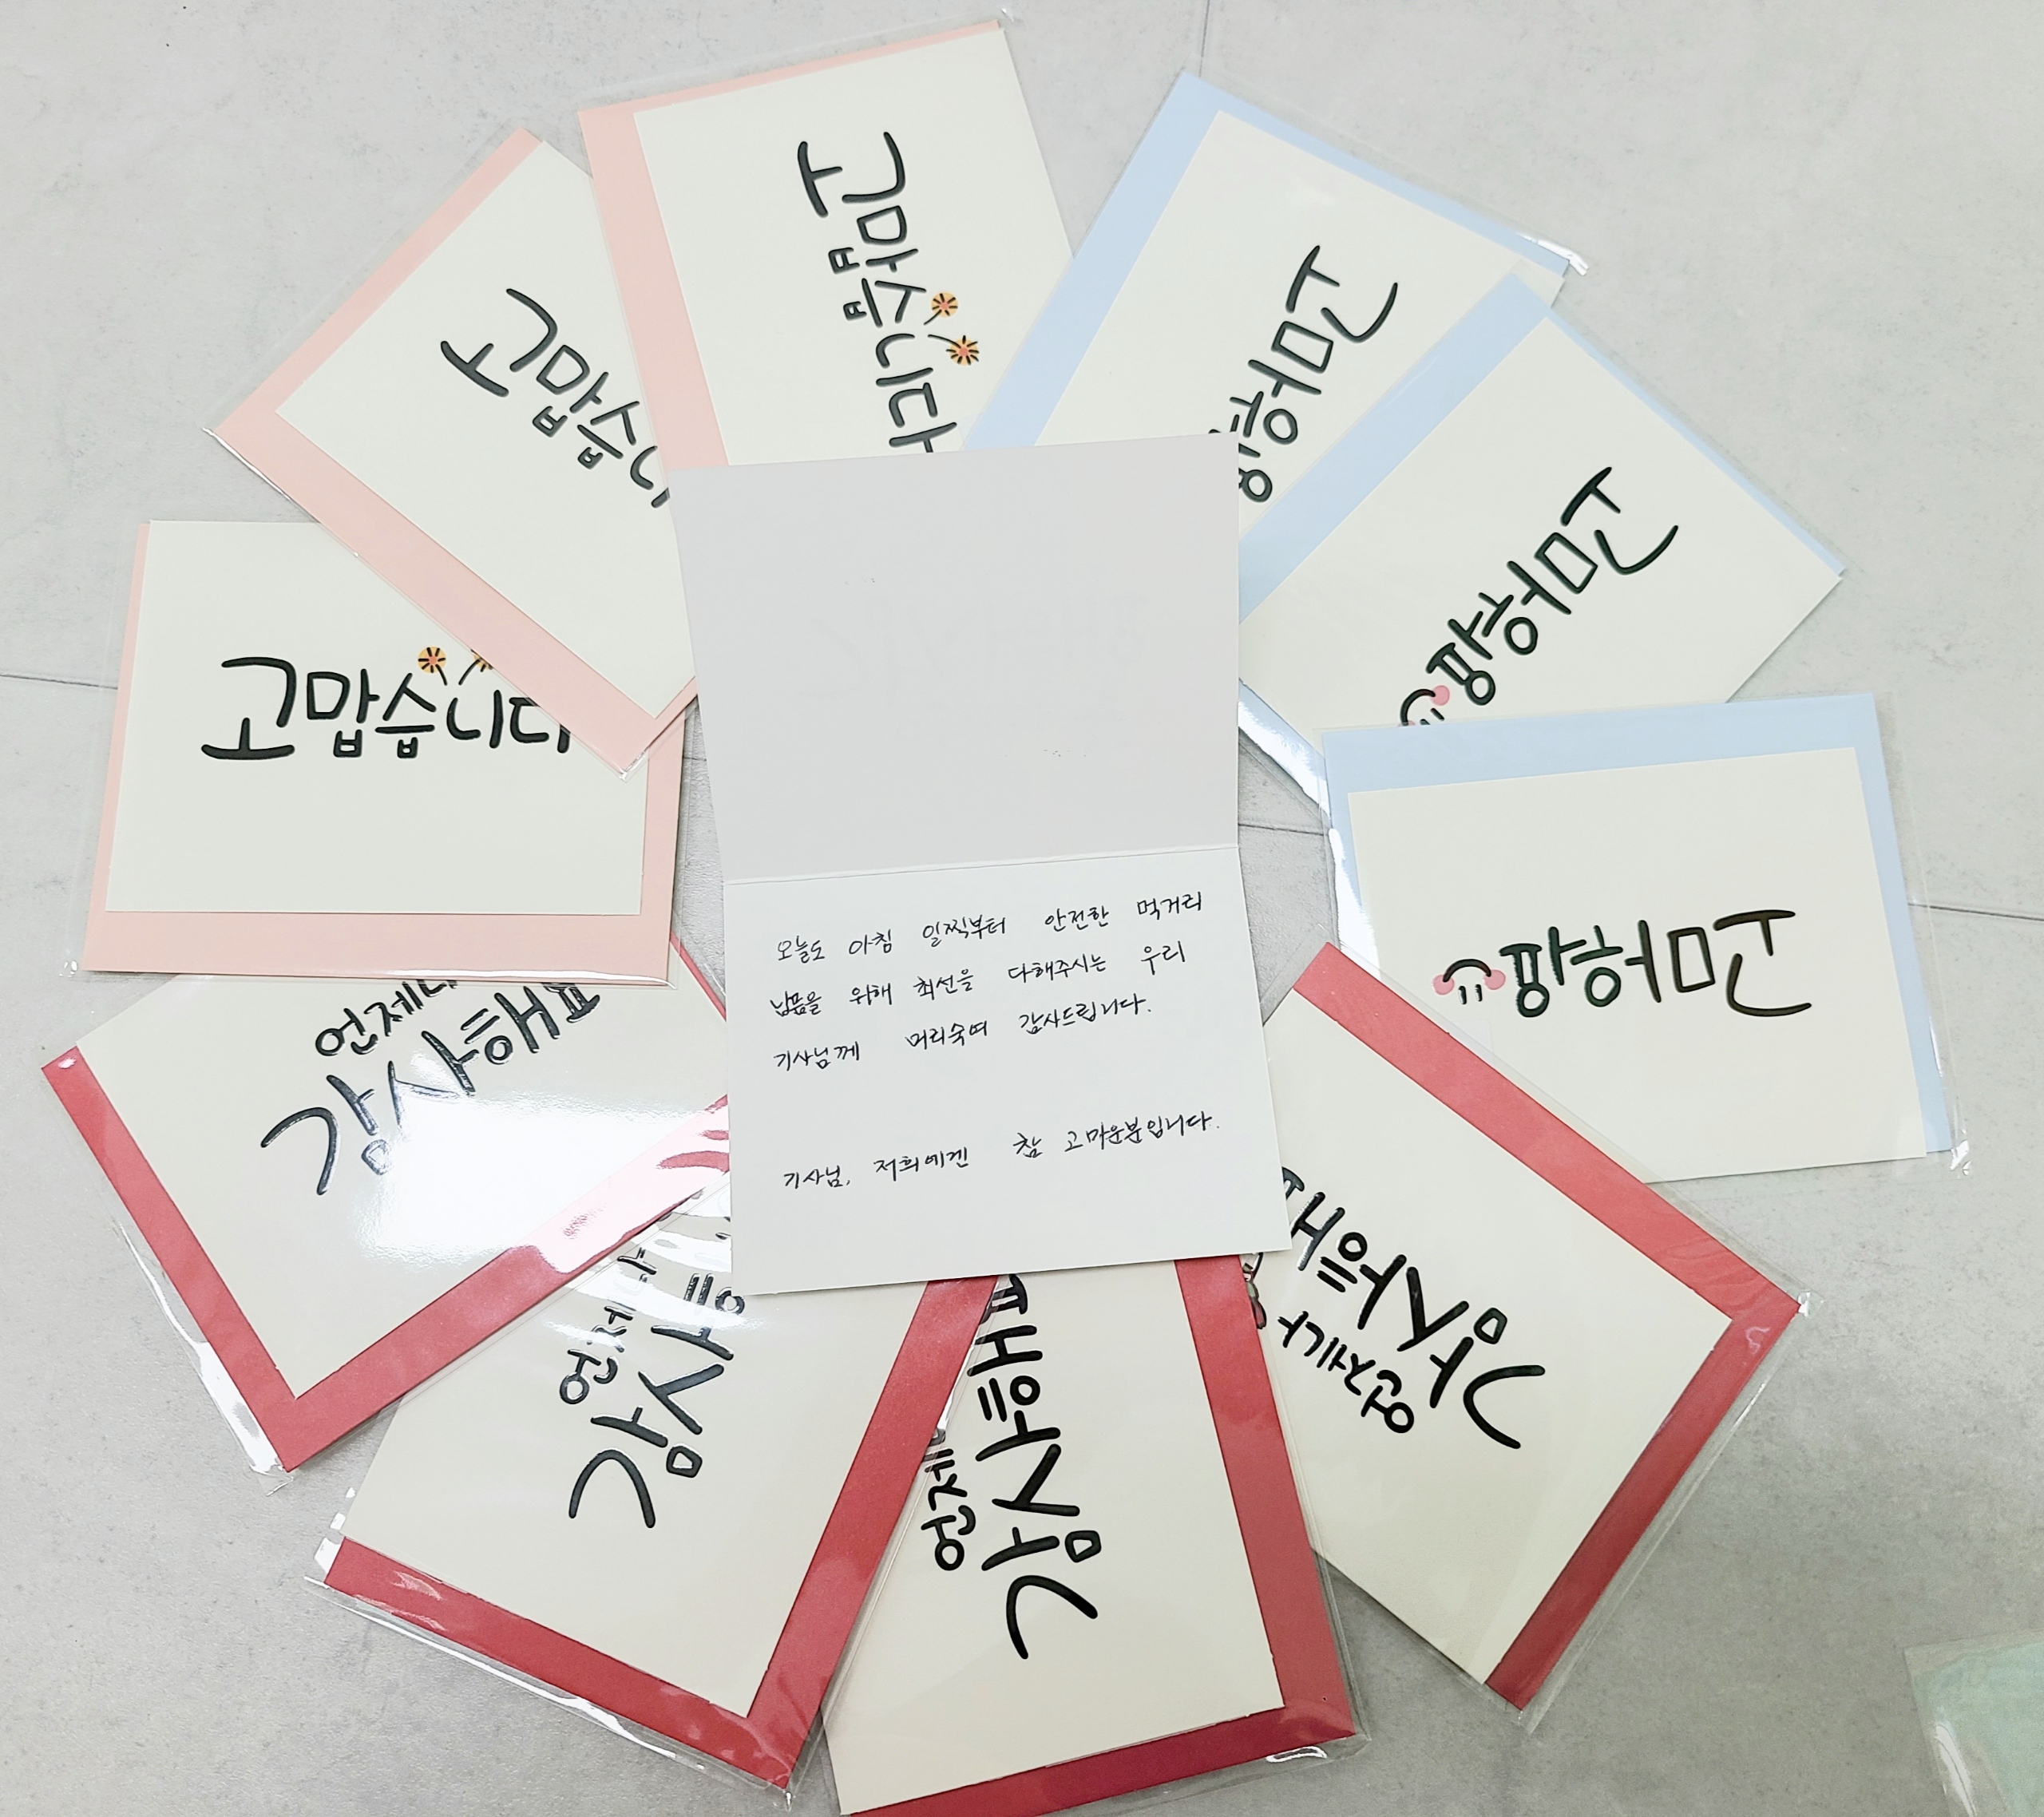 고맙습니다
고맙습니
고맙습니다
고마
고마워
고마워
언제나
감사해요
언제나
감사
언제
감사해요
언제나
감사해요
오늘도 아침 일찍부터 안전한 먹거리
납품을 위해 최선을 다해주시는 우리
기사님께 머리숙여 감사드립니다.
기사님, 저희에겐 참 고마운분입니다.